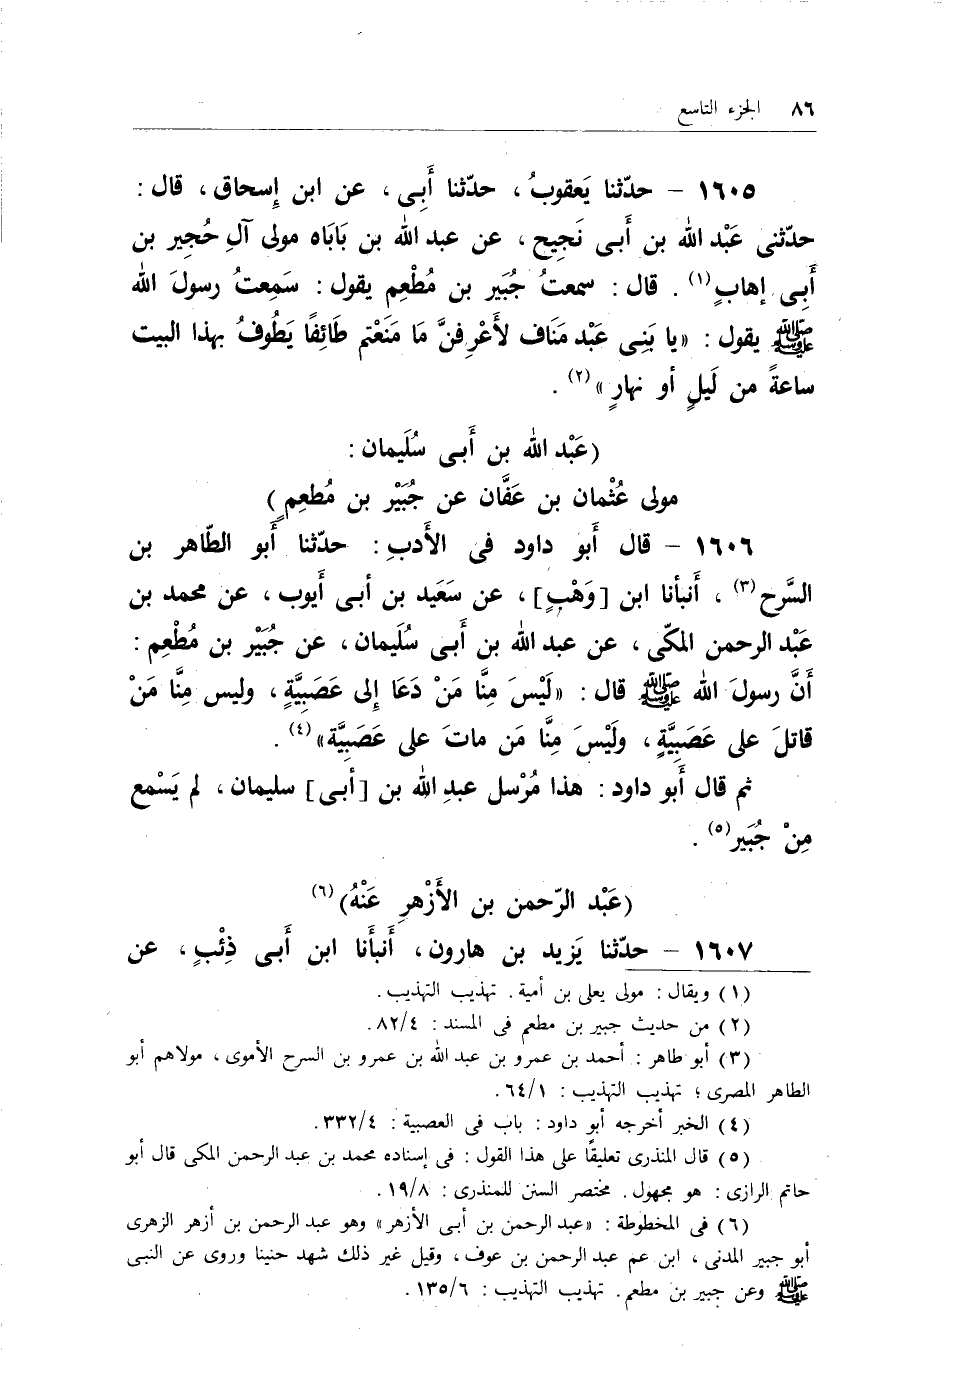 ٨٦ الجزء التاسع
١٦٠٥ – حدّثنا يَعقوبُ ، حدّثنا أَبِى ، عن ابن إِسحاق ، قال :
حدّثنى عَبْد الله بن أَبى نَجِيح ، عن عبد الله بن بَابَاه مولى آلِ حُجِير بن
أَبِى إهابٍ (١) . قال : سمعتُ جُبَير بن مُطْعِم يقول : سَمِعتُ رسولَ الله
ﷺ يقول : «يا بَنِى عَبْد مَنَاف لأَعْرِفنَّ مَا مَنَعْتم طَائِفًا يَطُوفُ بهذا البيت
ساعةً من لَيلٍ أو نهارٍ» (٢) .
(عَبْد الله بن أَبى سُلَيمان :
مولى عُثْمان بن عَفَّان عن جُبَيْر بن مُطعِمٍ)
١٦٠٦ – قال أَبو داود فى الأَدبِ : حدّثنا أَبو الطّاهر بن
السَّرح (٣) ، أَنبأنا ابن [وَهْبٍ] ، عن سَعَيد بن أبى أيوب ، عن محمد بن
عَبْد الرحمن المكّى ، عن عبد الله بن أَبى سُلَيمان ، عن جُبَيْر بن مُطْعِم :
أَنَّ رسولَ الله ﷺ قال : «لَيْسَ مِنَّا مَنْ دَعَا إلى عَصَبِيَّةٍ ، وليس مِنَّا مَنْ
قاتلَ على عَصَبِيَّةٍ ، ولَيْسَ مِنَّا مَن ماتَ على عَصَبِيَّة» (٤) .
ثم قال أَبو داود : هذا مُرْسل عبدِ الله بن [أبى] سليمان ، لم يَسْمع
مِنْ جُبَير (٥) .
(عَبْد الرّحمن بن الأَزْهرِ عَنْهُ) (٦)
١٦٠٧ – حدّثنا يَزيد بن هارون ، أَنبأَنا ابن أَبى ذِئْبٍ ، عن
(١) ويقال : مولى يعلى بن أمية . تهذيب التهذيب .
(٢) من حديث جبير بن مطعم فى المسند : ٨٢/٤ .
(٣) أبو طاهر : أحمد بن عمرو بن عبد الله بن عمرو بن السرح الأموى ، مولاهم أبو
الطاهر المصرى ؛ تهذيب التهذيب : ٦٤/١ .
(٤) الخبر أخرجه أبو داود : باب فى العصبية : ٣٣٢/٤ .
(٥) قال المنذرى تعليقًا على هذا القول : فى إسناده محمد بن عبد الرحمن المكى قال أبو
حاتم الرازى : هو مجهول . مختصر السنن للمنذرى : ١٩/٨ .
(٦) فى المخطوطة : «عبد الرحمن بن أبى الأزهر» وهو عبد الرحمن بن أزهر الزهرى
أبو جبير المدنى ، ابن عم عبد الرحمن بن عوف ، وقيل غير ذلك شهد حنينا وروى عن النبى
ﷺ وعن جبير بن مطعم . تهذيب التهذيب : ١٣٥/٦ .